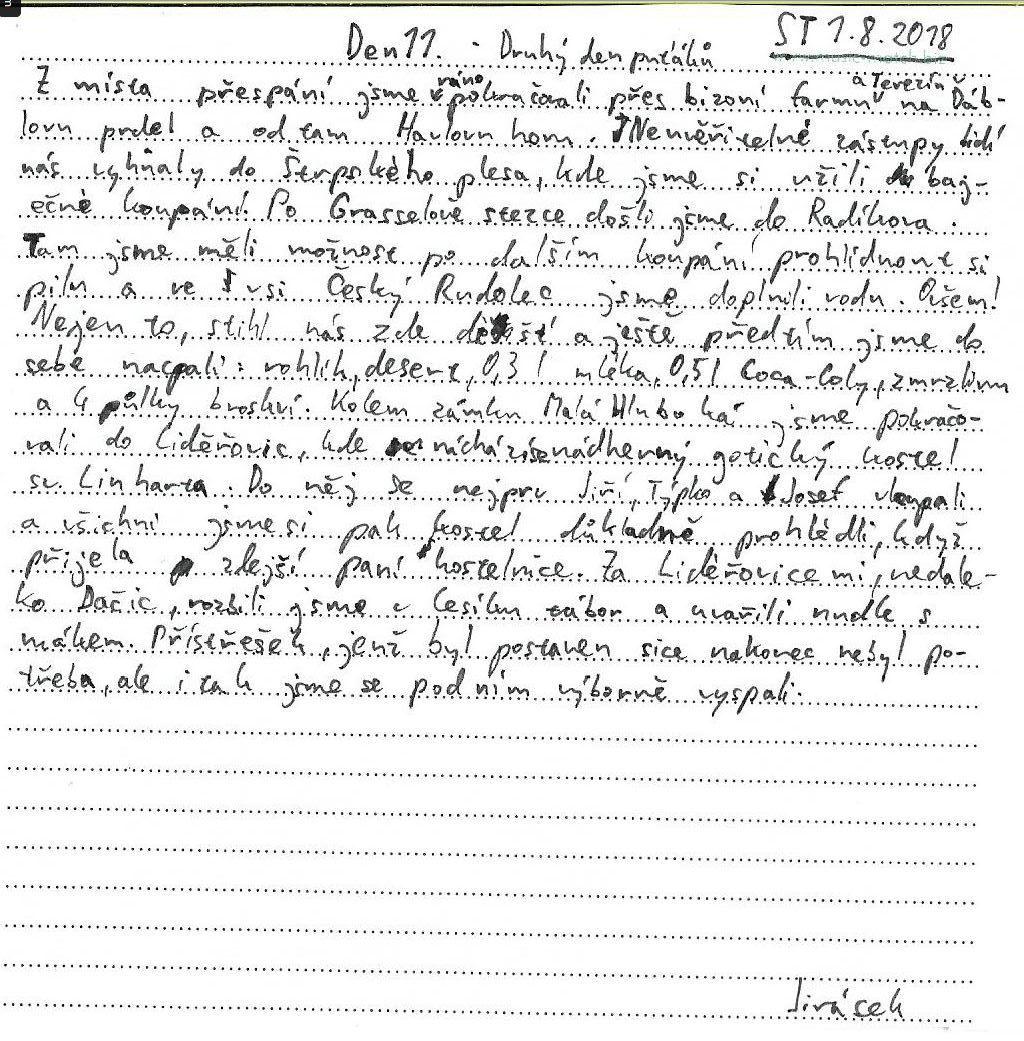 ST 1.8.2018
Den 11. - Druhý den puťáků
Z místa přespání jsme ráno pokračovali přes bizoní farmu a Terezín na Ďáb-
lovu prdel a odtam Havlovu horu. Neuvěřitelné zástupy lidí
nás vyhnaly do Štrpského plesa, kde jsme si užili báj-
ečné koupání. Po Grasselově stezce došli jsme do Radíkova.
Tam jsme měli možnost po dalším koupání prohlídnout si
pilu a ve vsi Český Rudolec jsme doplnili vodu. Ovšem!
Nejen to, stihl nás zde déšť a ještě předtím jsme do
sebe nacpali: rohlík, desert, 0,3 l mléka, 0,5 l Coca-Coly, zmrzlinu
a 4 půlky broskví. Kolem zámku Malá Hluboká jsme pokračo-
vali do Lidéřovic, kde se nachází nádherný gotický kostel
sv. Linharta. Do něj se nejprv Jiří, Týpko a Josef vloupali
a všichni jsme si pak kostel důkladně prohlédli, když
přijela zdejší paní kostelnice. Za Lidéřovicemi, nedale-
ko Dačic, rozbili jsme v lesíku tábor a uvařili nudle s
mákem. Přístřešek, jenž byl postaven sice nakonec nebyl po-
třeba, ale i tak jsme se pod ním výborně vyspali.
Jirásek